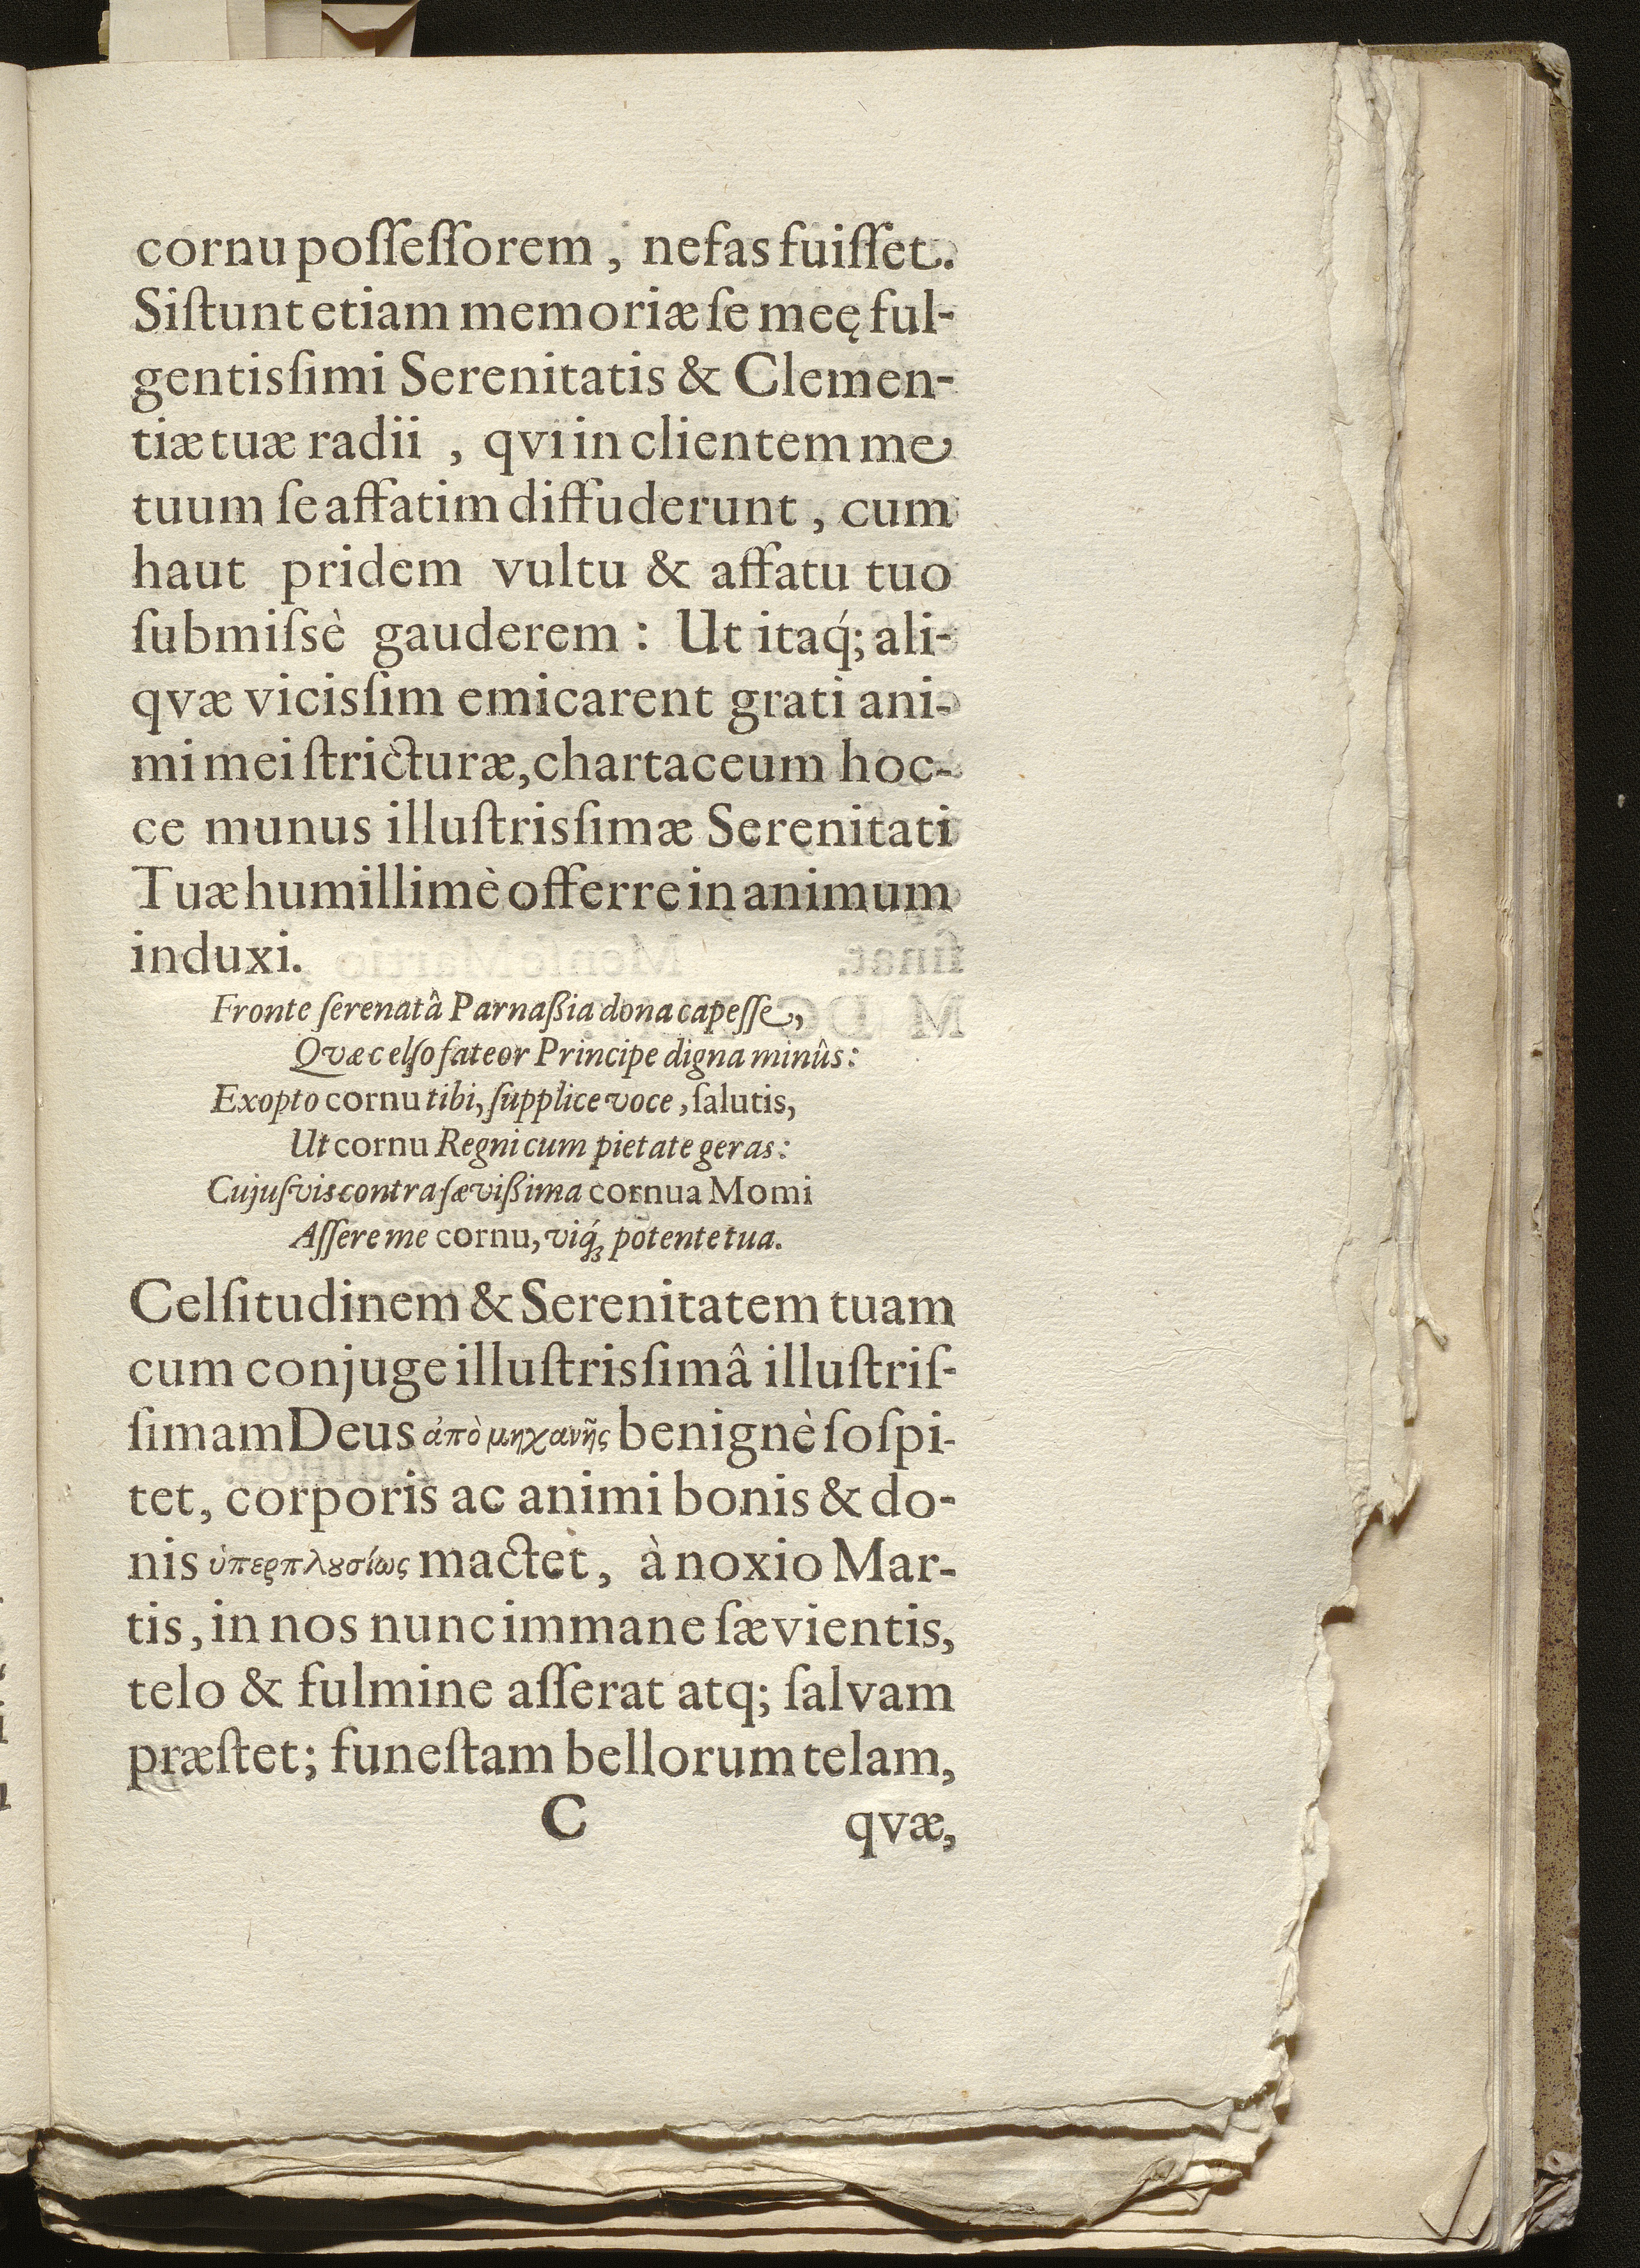 cornu poſſeſſorem, nefas fuiſſet.
Siſtunt etiam memoriæ ſe meę ful-
gentisſimi Serenitatis & Clemen-
tiæ tuæ radii, qvi in clientem me
tuum ſe affatim diffuderunt, cum
haut pridem vultu & affatu tuo
ſubmiſsè gauderem: Ut itaq́; ali-
qvæ vicisſim emicarent grati ani-
mi mei ſtricturæ, chartaceum hoc-
ce munus illuſtrisſimæ Serenitati
Tuæ humillimè offerre in animum
induxi.
Fronte ſerenatâ Parnaßia dona capeſſe,
Qvæ celſo fateor Principe digna minûs:
Exopto cornu tibi, ſupplice voce, ſalutis,
Ut cornu Regni cum pietate geras:
Cujuſvis contra ſævißima cornua Momi
Aſſere me cornu, viq́ꝫ potente tua.
Celſitudinem & Serenitatem tuam
cum conjuge illuſtrisſimâ illuſtriſ-
ſimam Deus ἀπὸ μηχανῆς benignè ſoſpi-
tet, corporis ac animi bonis & do-
nis ὑπερπλȣσίως mactet, à noxio Mar-
tis, in nos nunc immane ſævientis,
telo & fulmine aſſerat atq; ſalvam
præſtet; funeſtam bellorum telam,
C qvæ,